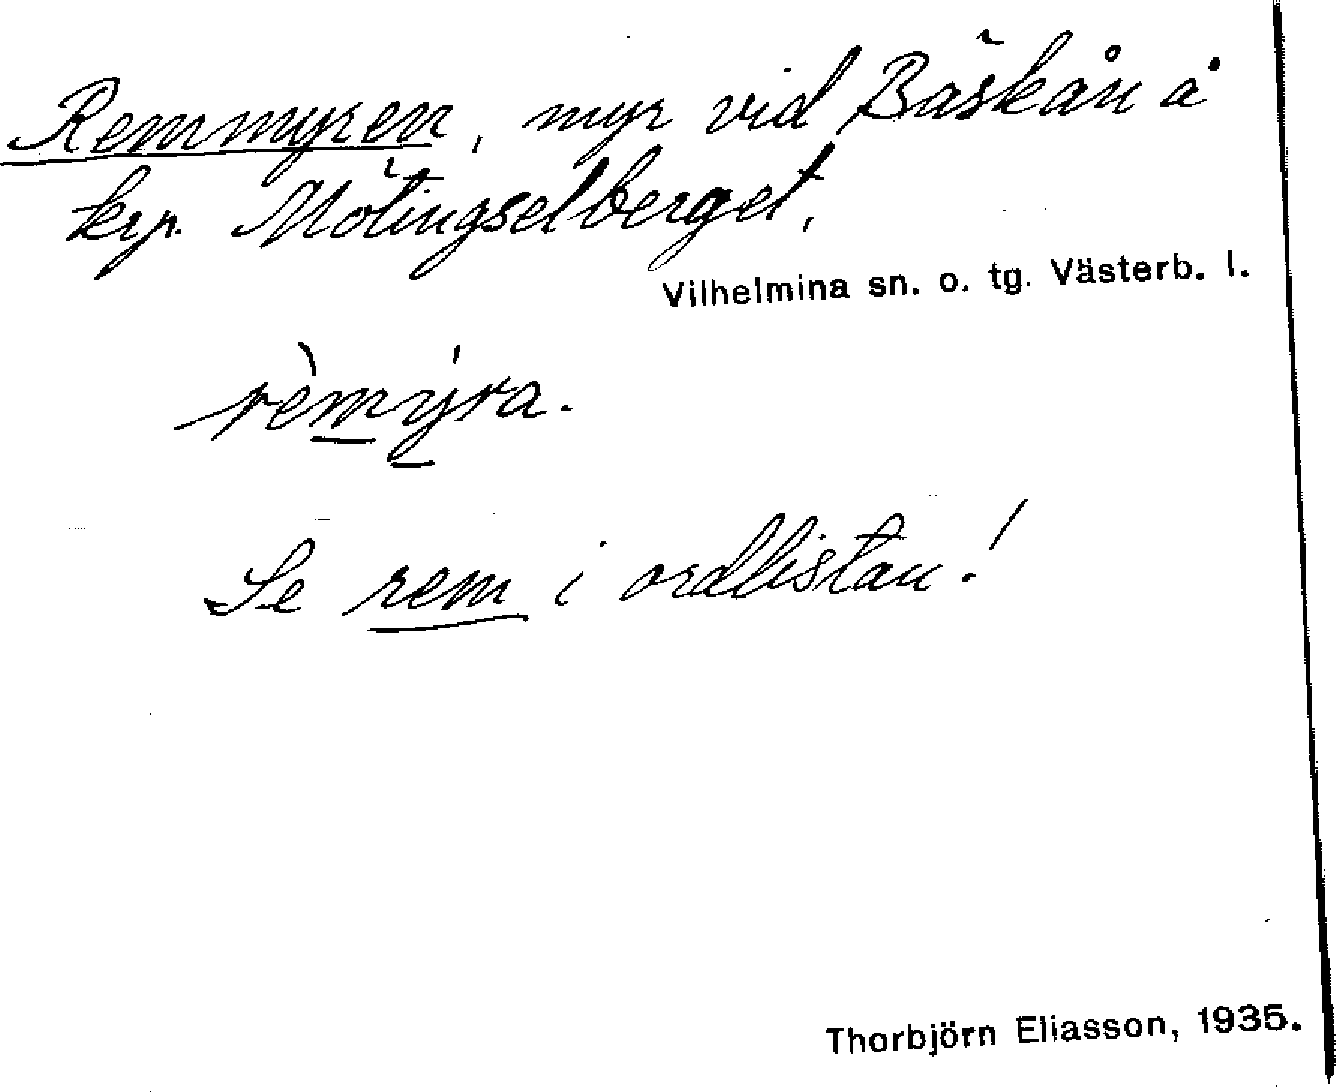 Remmyren, myr vid Bäskån å
krp. Mötingselberget.
Vilhelmina sn. o. tg. Västerb. l.
rèmýra.
Se rem i ordlistan!
Thorbjörn Eliasson, 1935.